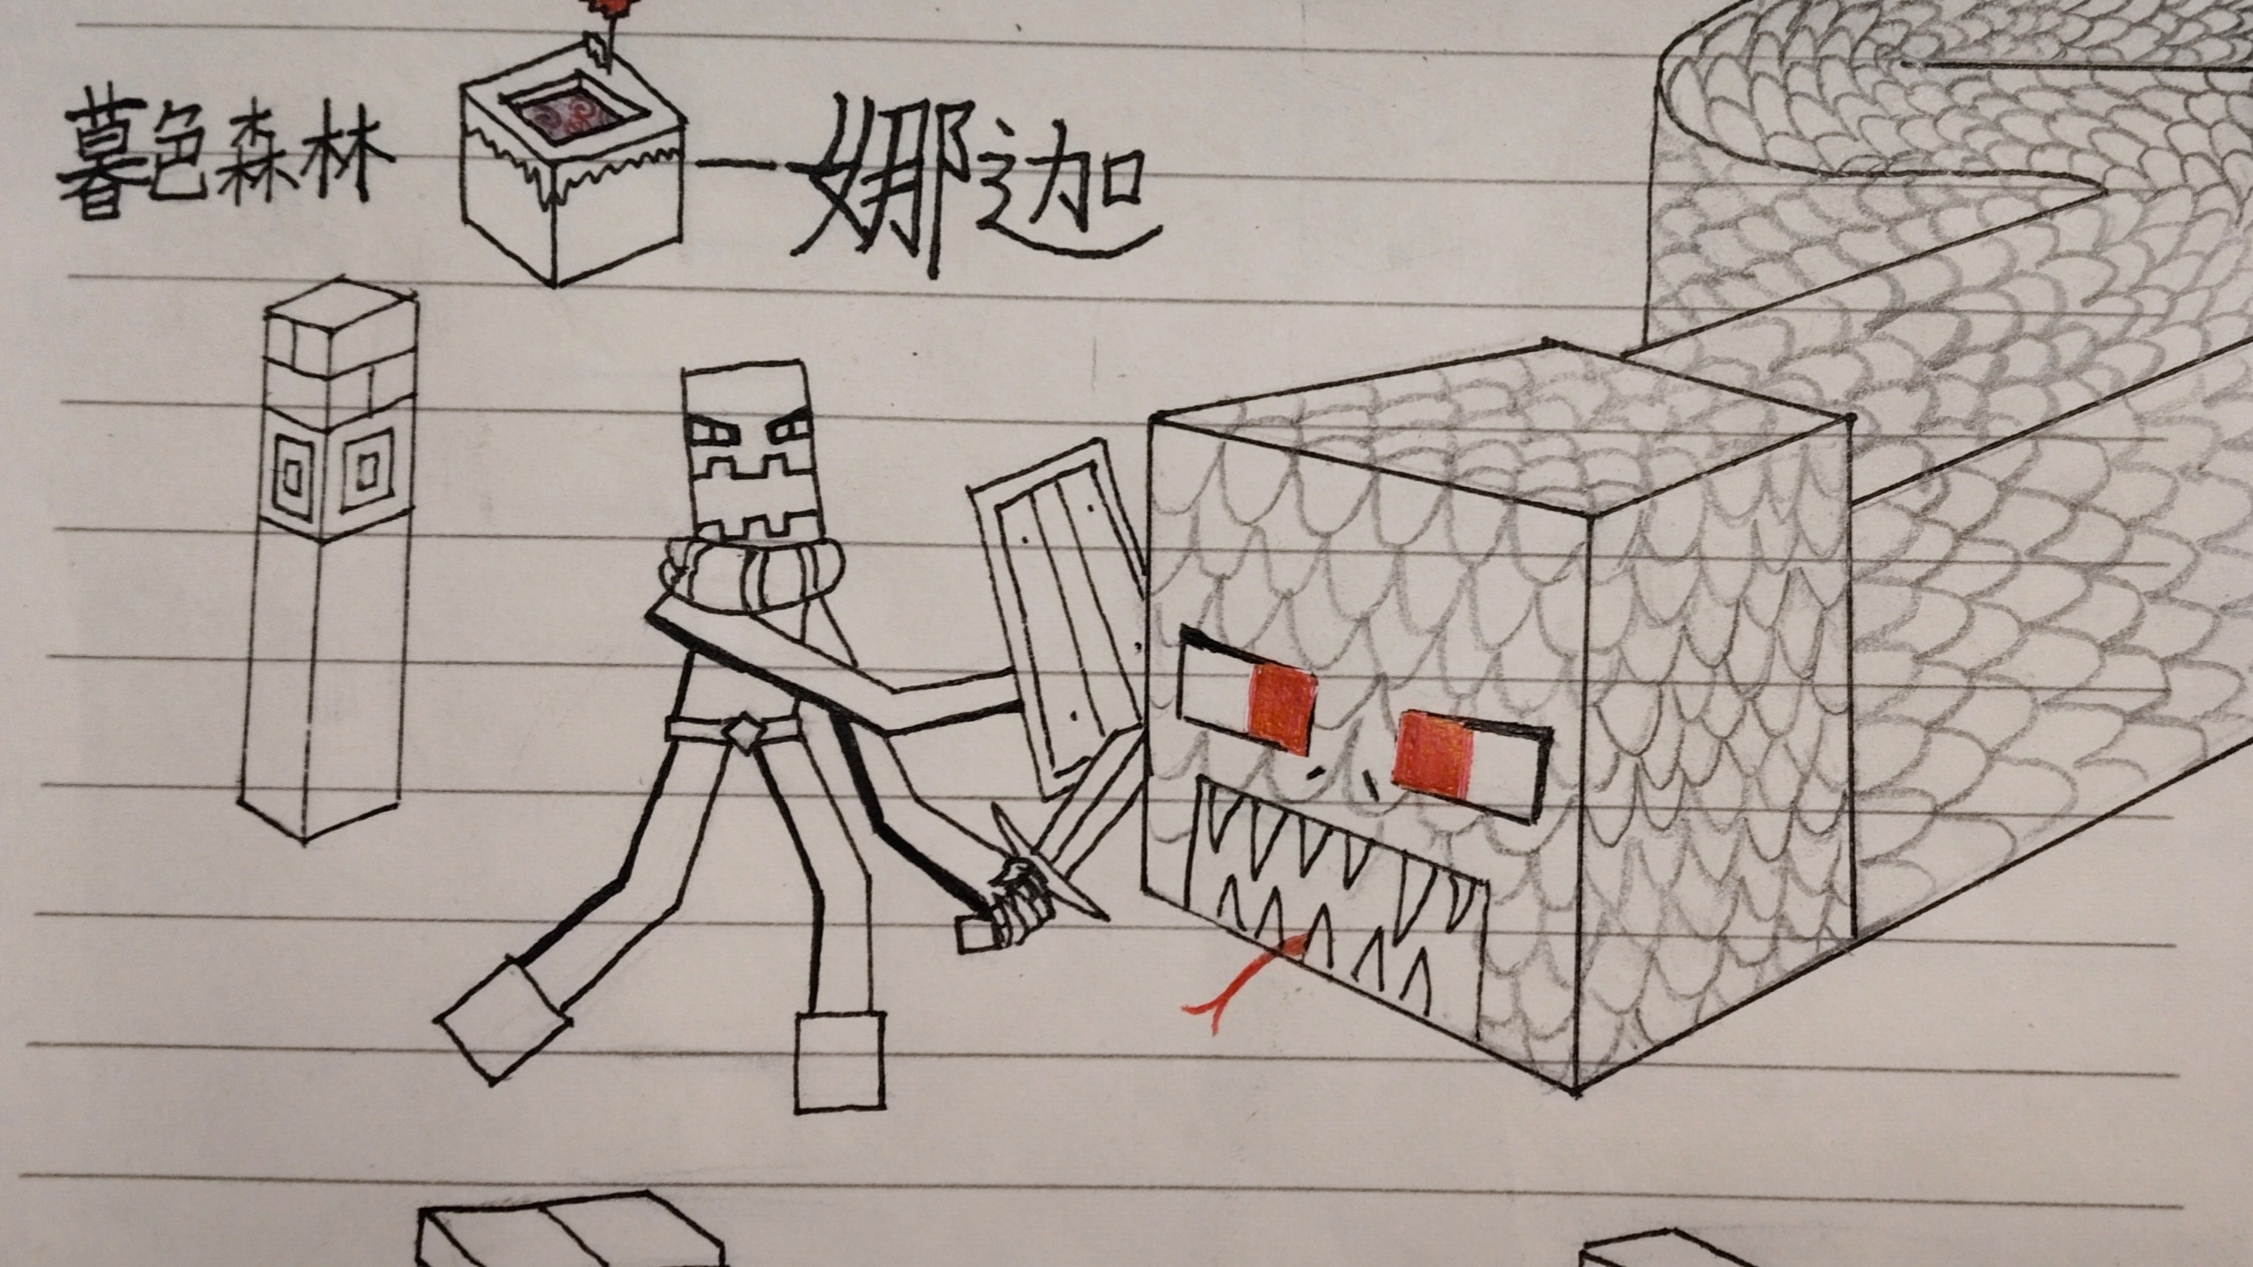 暮色森林 — 娜迦